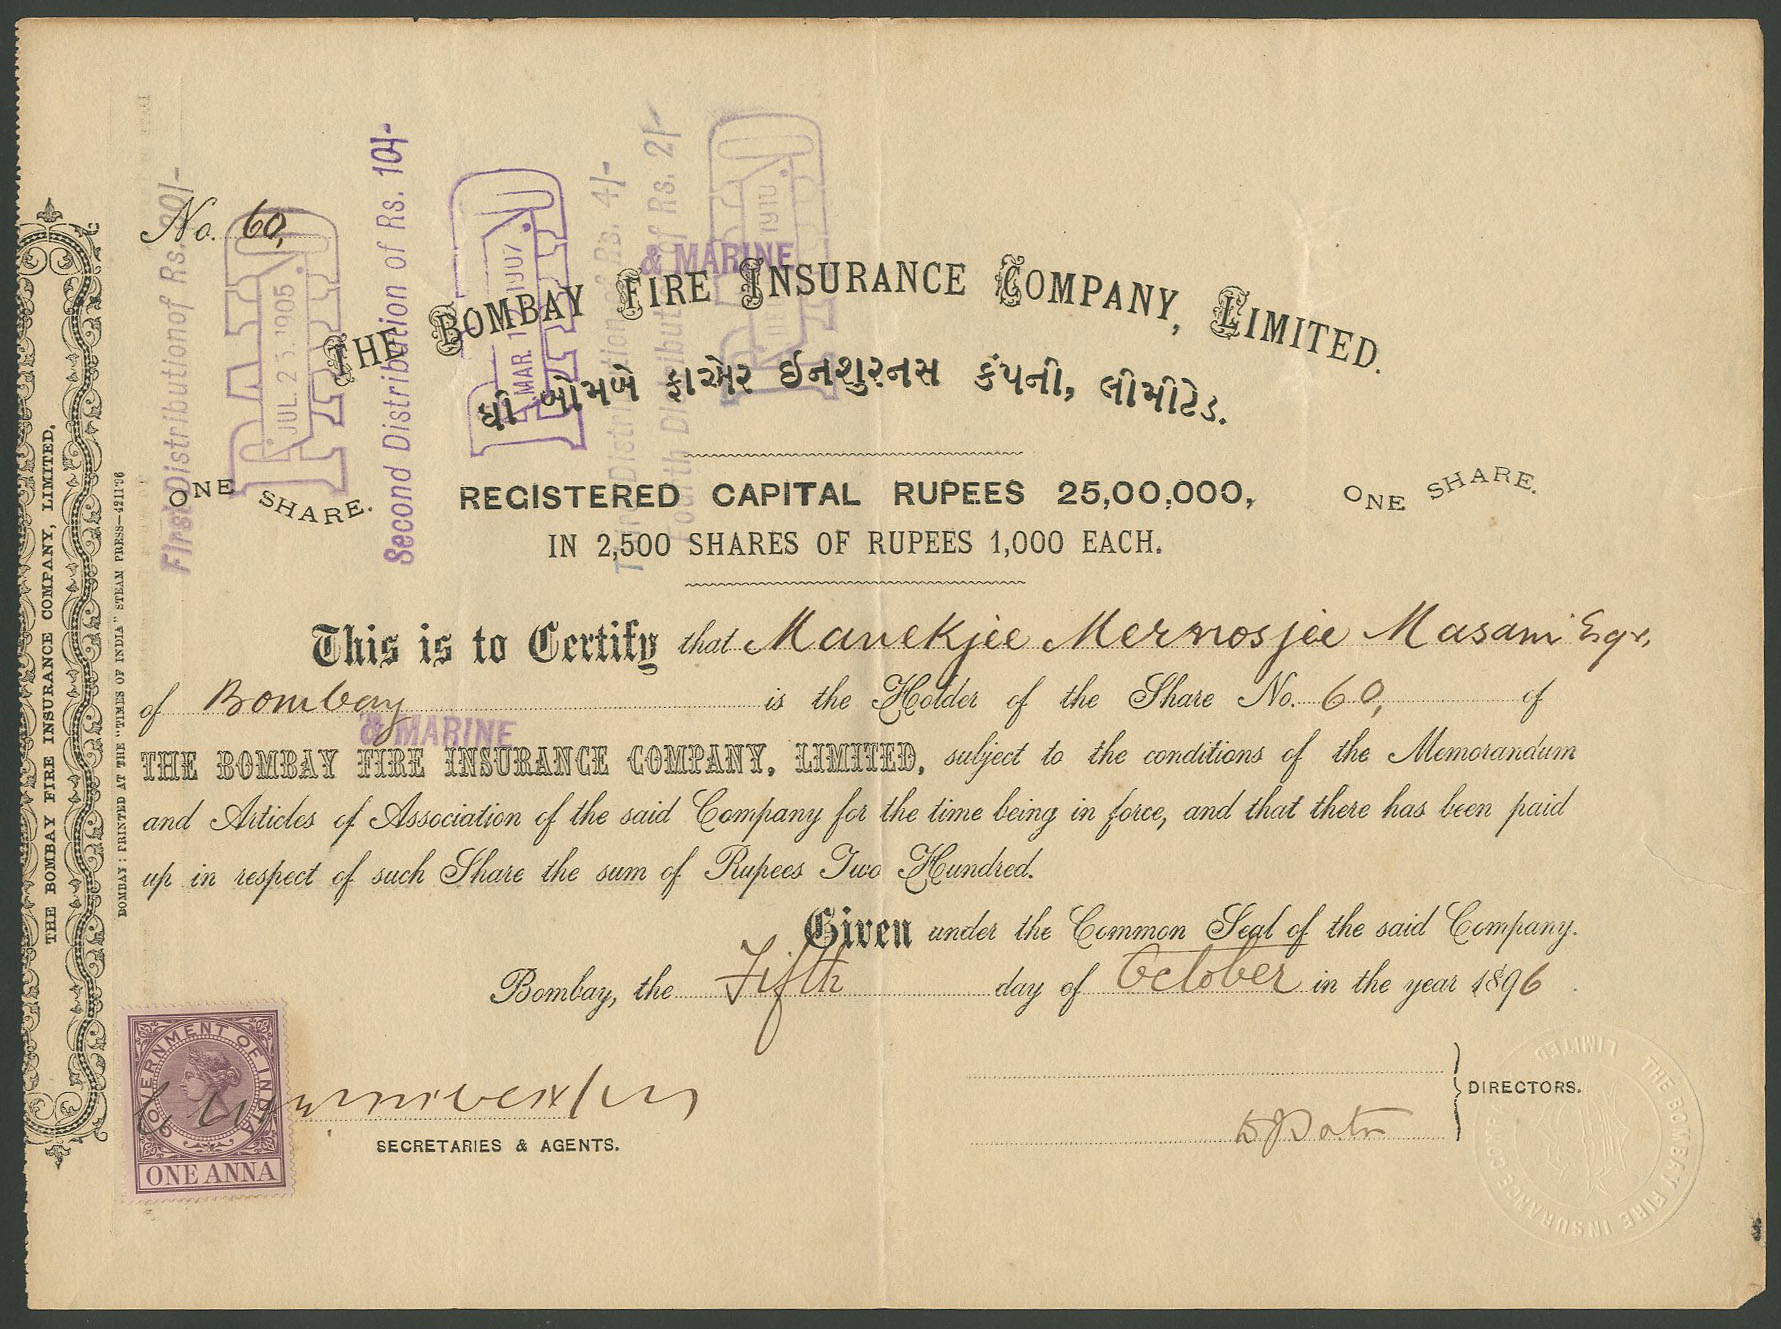 No. 60,
THE BOMBAY FIRE & MARINE INSURANCE COMPANY, LIMITED.
ધી બોમબે ફાએર ઈનશુરનસ કંપની, લીમીટેડ.
ONE SHARE.
REGISTERED CAPITAL RUPEES 25,00,000,
ONE SHARE.
IN 2,500 SHARES OF RUPEES 1,000 EACH.
This is to Certify that Manekjee Mernosjee Masani Esqr,
of Bombay is the Holder of the Share No. 60, of
& MARINE
THE BOMBAY FIRE INSURANCE COMPANY, LIMITED, subject to the conditions of the Memorandum
and Articles of Association of the said Company for the time being in force, and that there has been paid
up in respect of such Share the sum of Rupees Two Hundred.
Given under the Common Seal of the said Company.
Bombay, the Fifth day of October in the year 1896
DIRECTORS.
SECRETARIES & AGENTS.
GOVERNMENT OF INDIA
ONE ANNA
THE BOMBAY FIRE INSURANCE COMPANY LIMITED
THE BOMBAY FIRE INSURANCE COMPANY, LIMITED.
BOMBAY: PRINTED AT THE "TIMES OF INDIA" STEAM PRESS—4211'96
First Distribution of Rs. 20/-
PAID
JUL. 25. 1905
Second Distribution of Rs. 10/-
PAID
MAR. 1907
Third Distribution of Rs. 4/-
Fourth Distribution of Rs. 2/-
PAID
1910